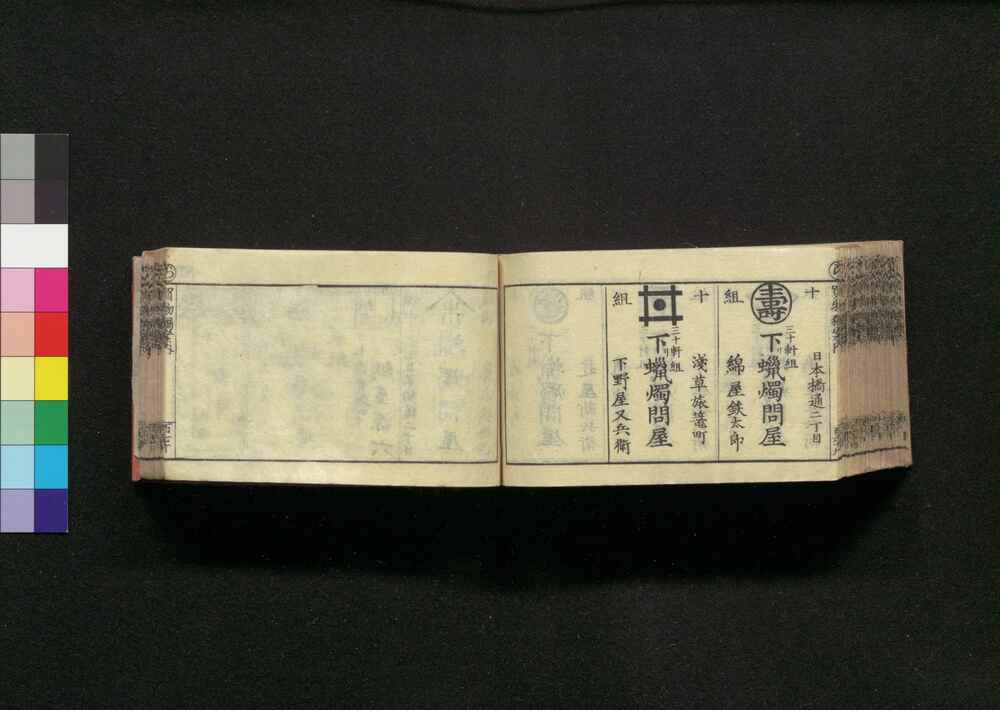 十
組
日本橋通二丁目
壽
三十軒組
下リ蠟燭問屋
綿屋鉄太郎
十
組
淺草旅籠町
三十軒組
下リ蠟燭問屋
下野屋又兵衛